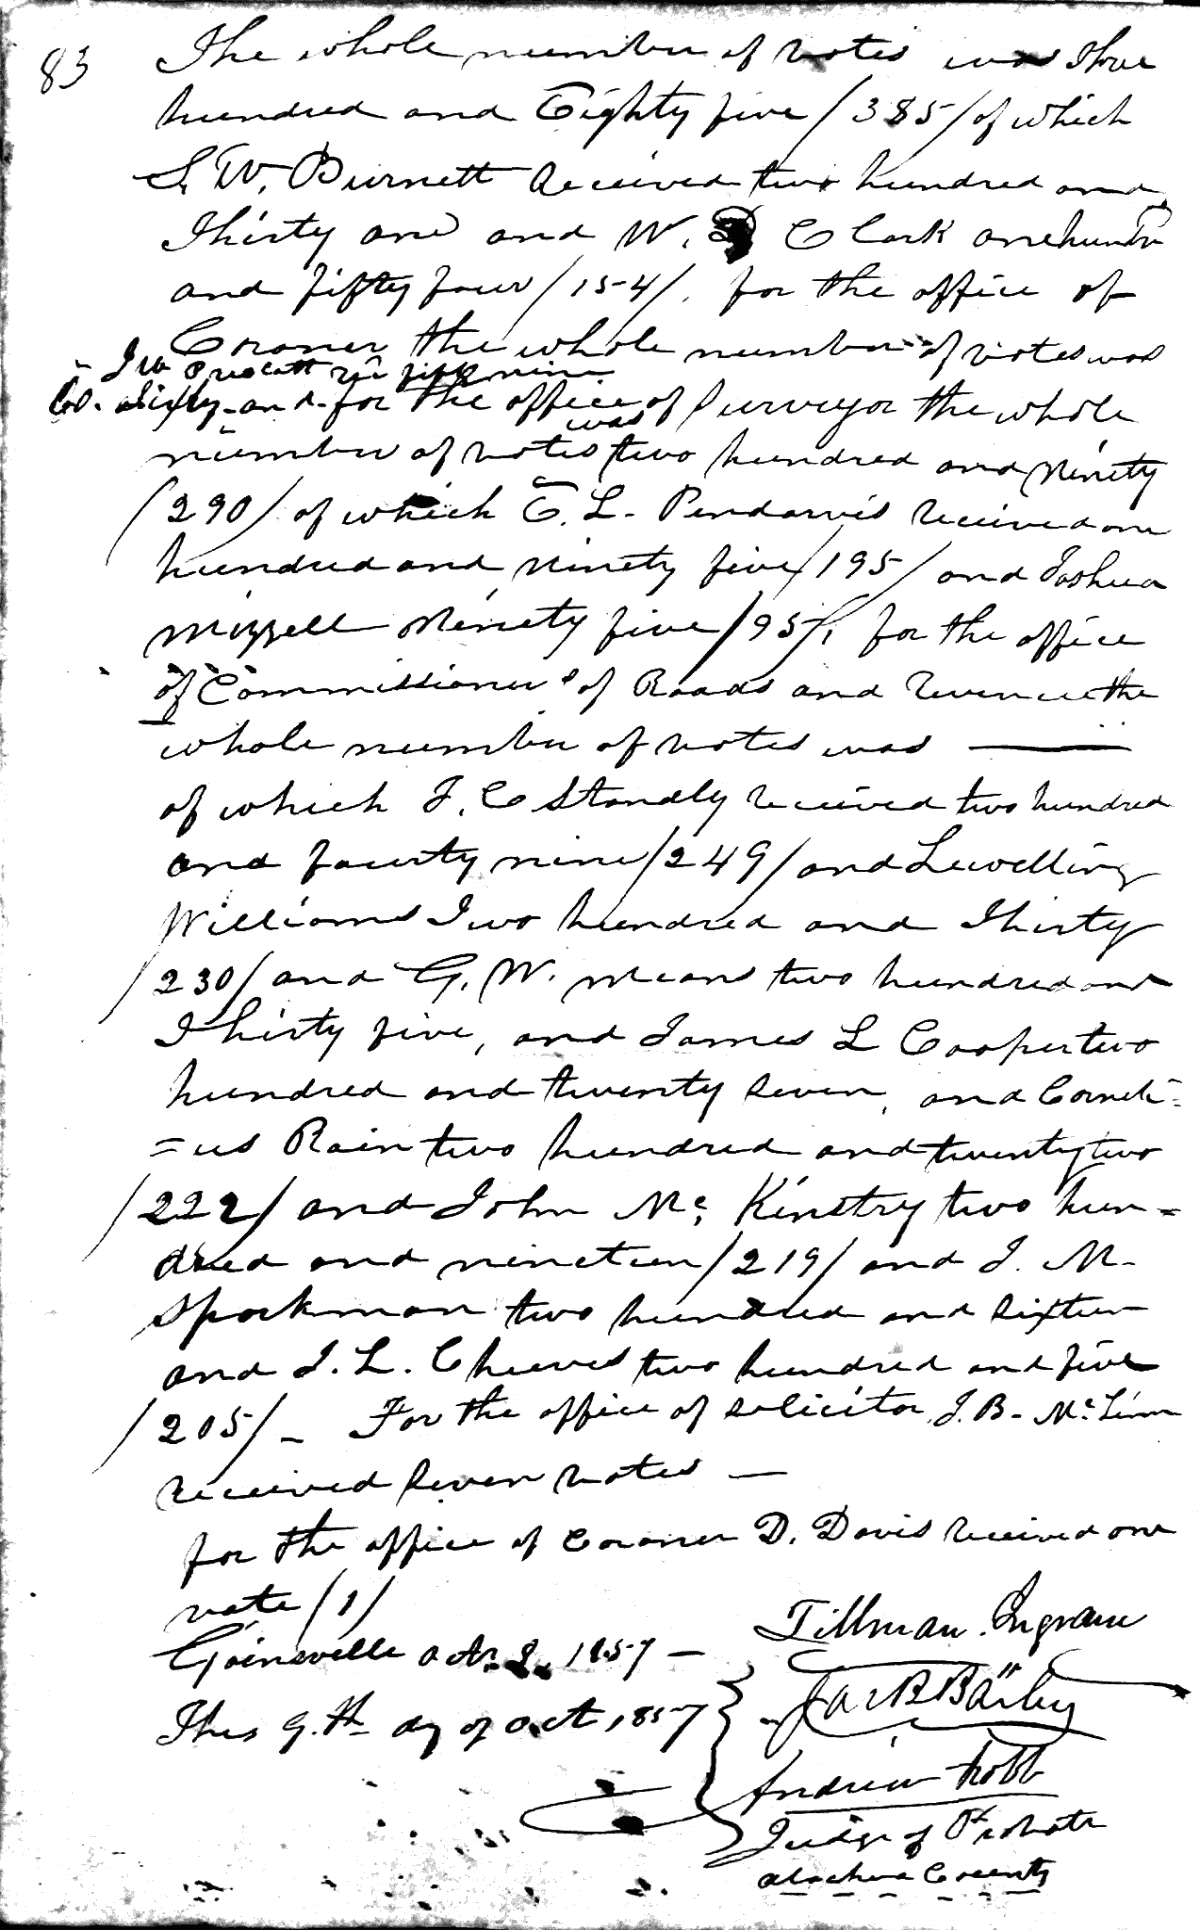 83
The whole number of votes was three
hundred and Eighty five /385/ of which
S. W. Burnett Received two hundred and
Thirty one and W. D Clark one hundr
and fifty four /154/. for the office of
Coroner the whole number of votes was
Prescott fifty nine
Sixty-and-for the office of Surveyor the whole
was
number of votes two hundred and Ninety
/290/ of which E. L. Pendarvis received one
hundred and ninety five /195/ and Joshua
Mizzell Ninety five /95/, for the office
of Commissioner of Roads and Revenue the
whole number of votes was ———
of which J. C Standly received two hundred
and fourty nine /249/ and Lewelling
Williams Two hundred and Thirty
/230/ and G. W. Means two hundred and
Thirty five, and James L Cooper two
hundred and twenty seven, and Corneli=
=us Rain two hundred and twenty two
/222/ and John Mc. Kinstry two hun=
dred and nineteen /219/ and J. M.
Sparkman two hundred and sixteen
and J. L. Cheeves two hundred and five
/205/ - For the office of solicitor J. B. McLinn
received seven votes —
for the office of Coroner D. Davis received one
vote /1/
Gainsville Oct. 1857 —
This 9.th day of Oct, 1857
Tillman Ingram
Bailey
Andrew Robb
Judge of Probate
Alachua County